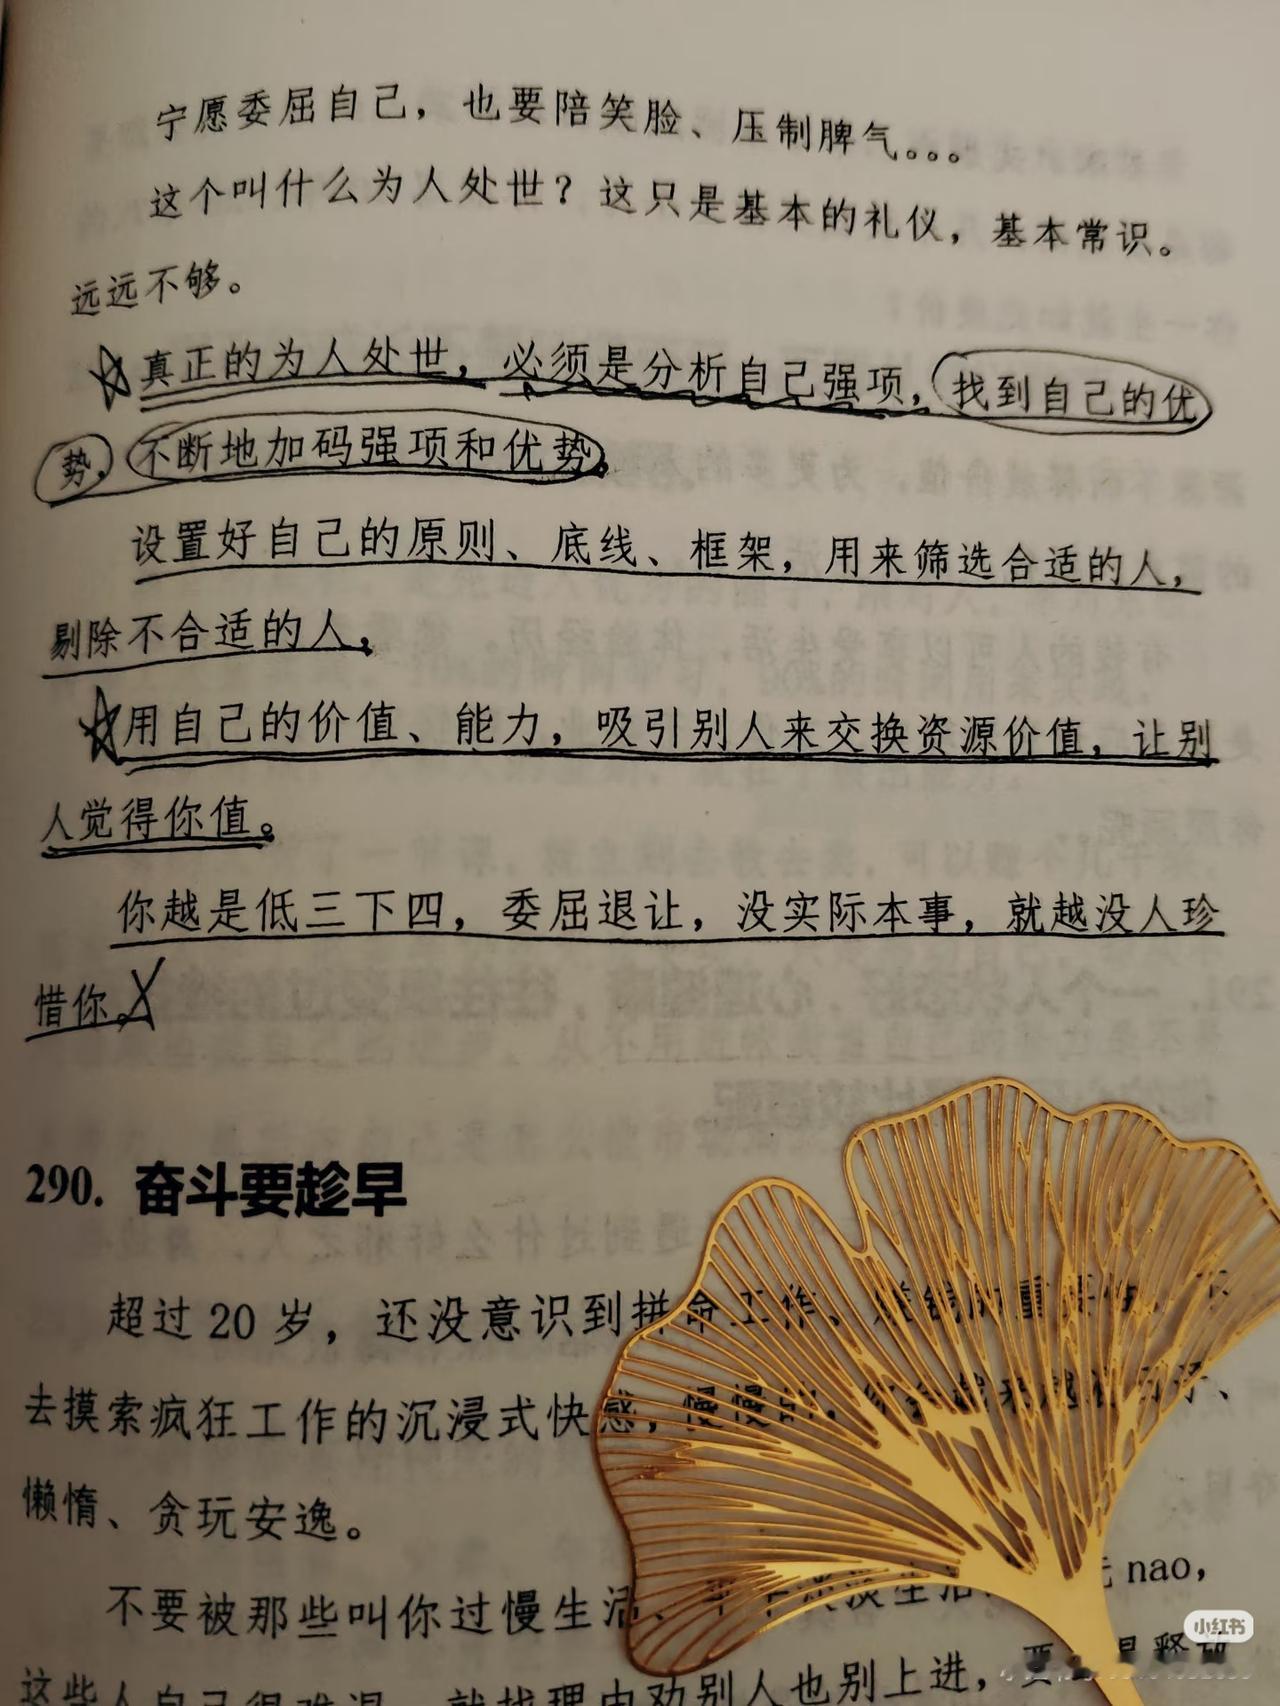 宁愿委屈自己，也要陪笑脸、压制脾气。。。
这个叫什么为人处世？这只是基本的礼仪，基本常识。
远远不够。
真正的为人处世，必须是分析自己强项，找到自己的优
势，不断地加码强项和优势。
设置好自己的原则、底线、框架，用来筛选合适的人，
剔除不合适的人。
用自己的价值、能力，吸引别人来交换资源价值，让别
人觉得你值。
你越是低三下四，委屈退让，没实际本事，就越没人珍
惜你。
290. 奋斗要趁早
超过 20 岁，还没意识到拼命工作、
去摸索疯狂工作的沉浸式快感，慢慢
懒惰、贪玩安逸。
不要被那些叫你过慢生活、 nao，
这些人自己很难混，就找理由劝别人也别上进，
小红书